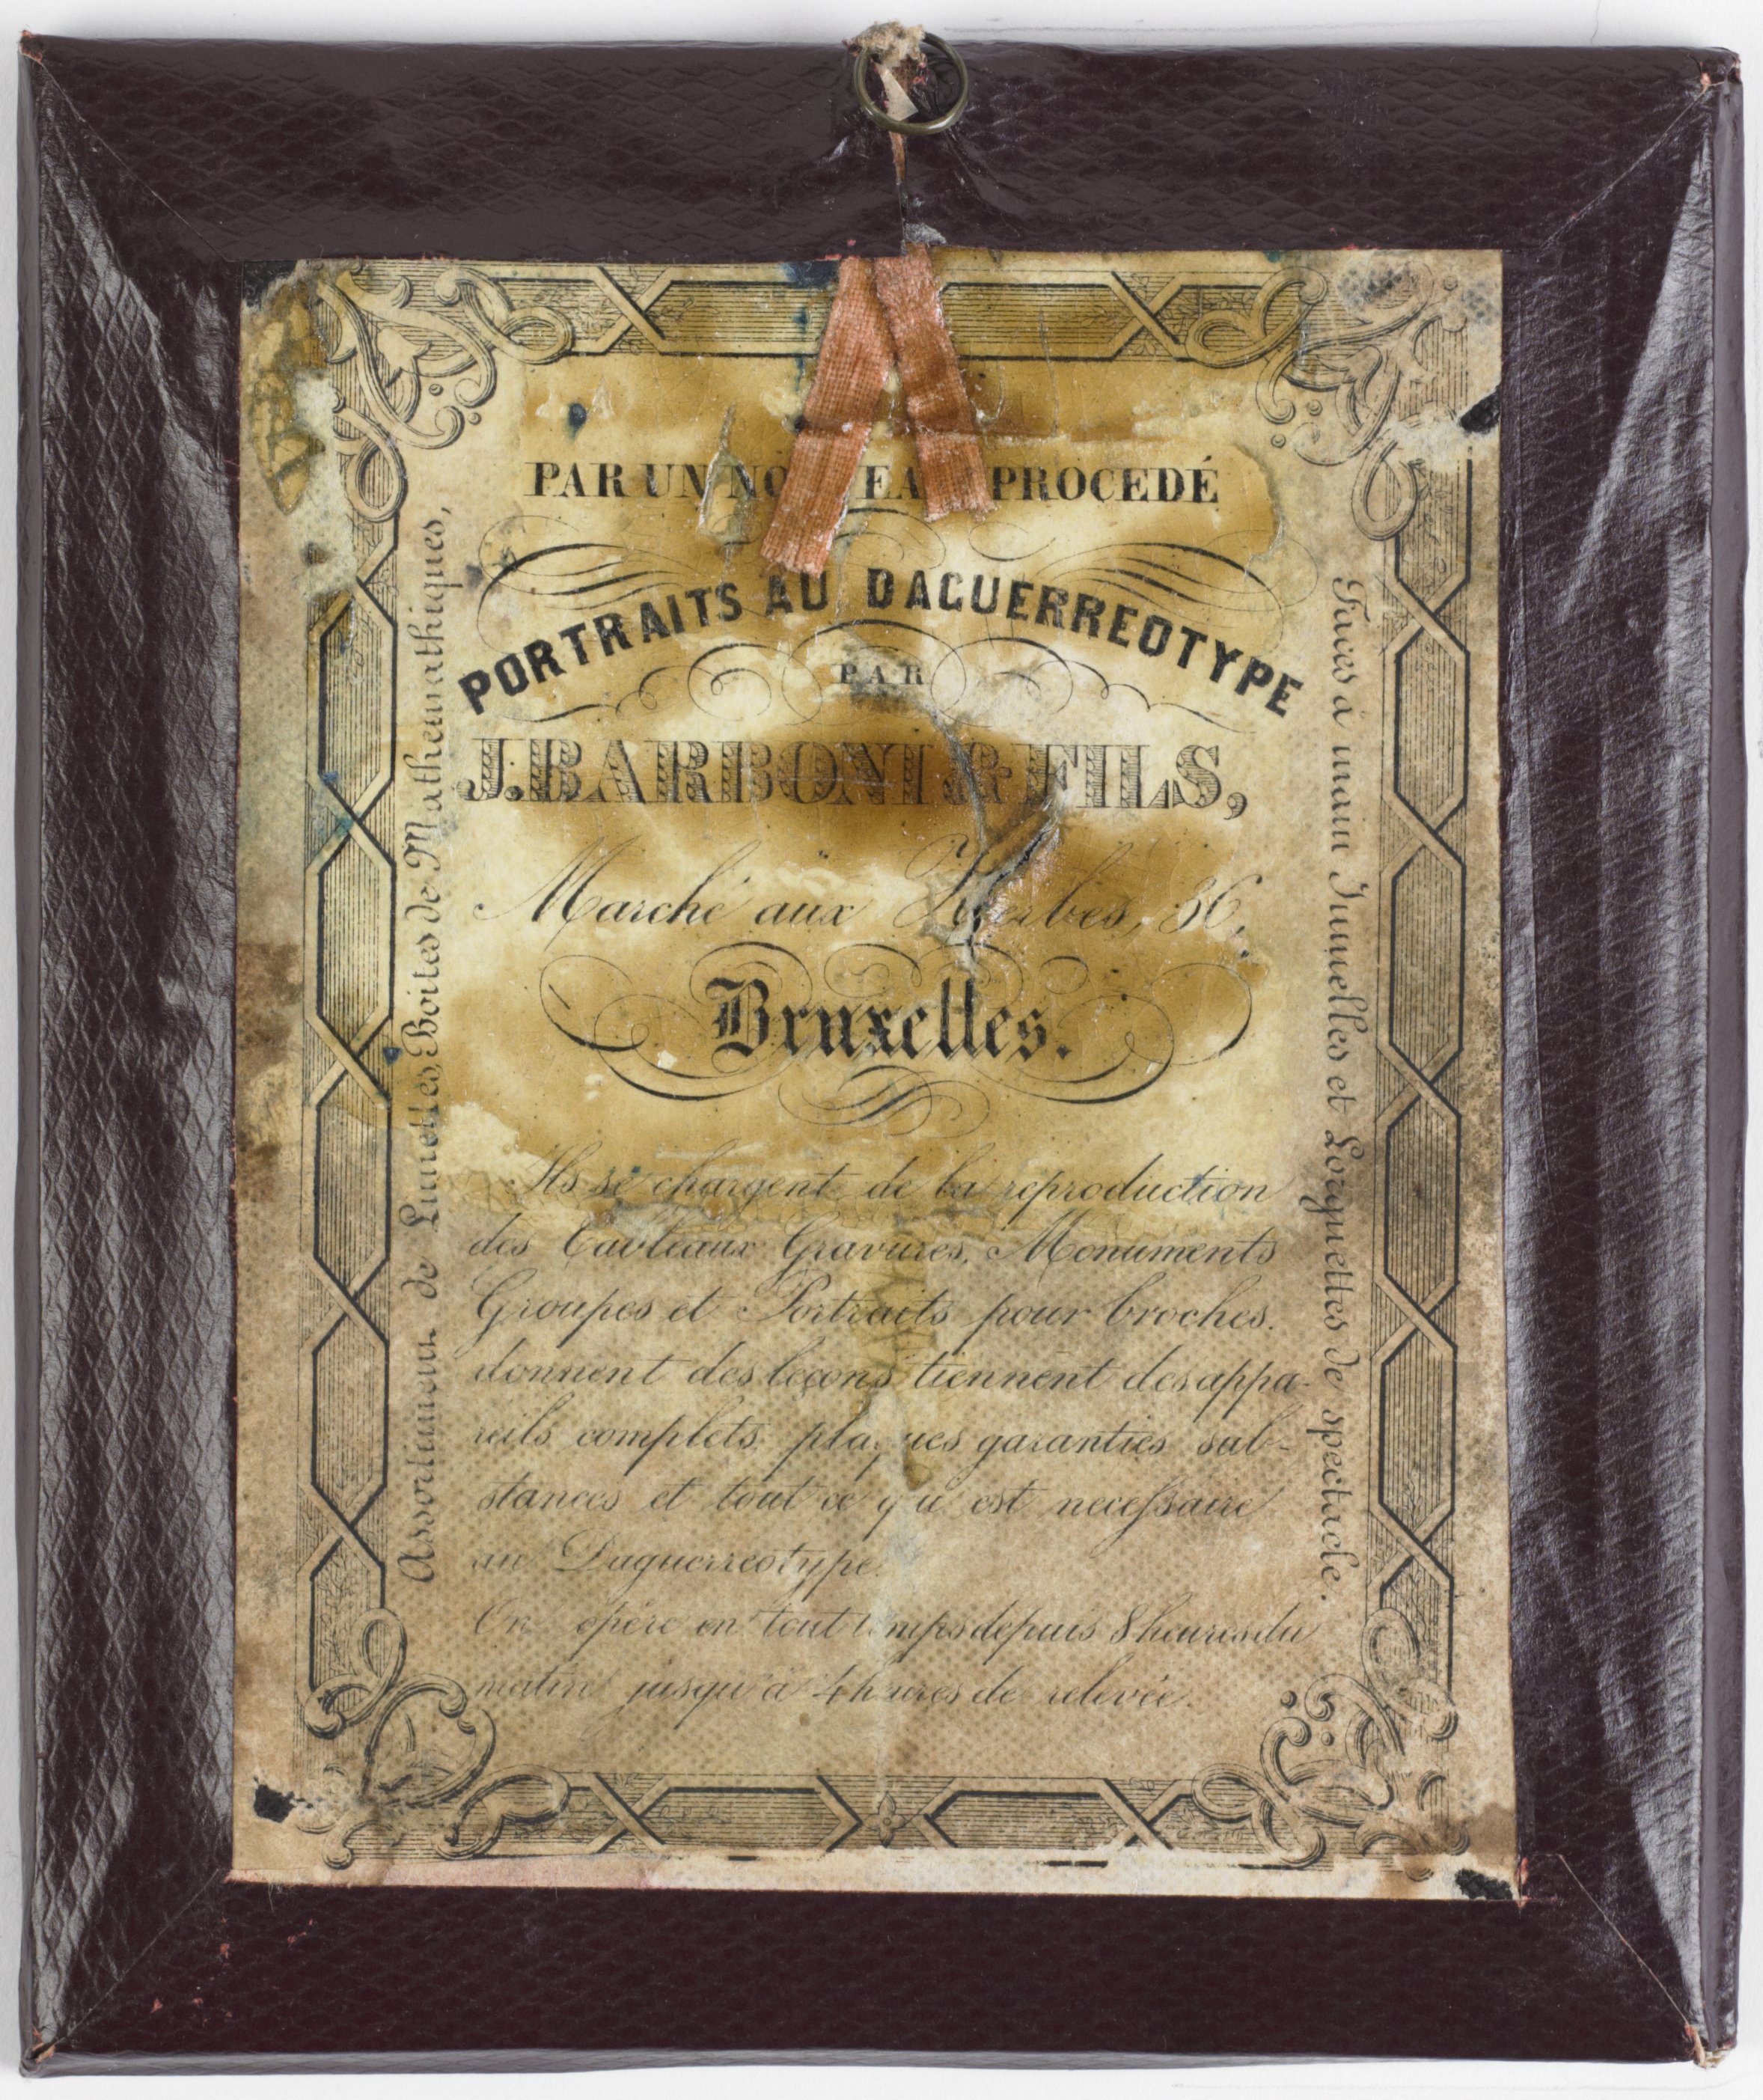 PAR UN NOUVEAU PROCEDÉ
PORTRAITS AU DAGUERREOTYPE
PAR
J. BARBONI & FILS,
Marché aux Herbes, 36,
Bruxelles.
Ils se chargent de la reproduction
des Tableaux Gravures, Monuments
Groupes et Portraits pour broches.
donnent des leçons tiennent des appa-
reils complets, plaques garanties sub-
stances et tout ce qui est necessaire
au Daguerreotype.
On opère en tout temps depuis 8 heures du
matin jusqu'à 4 heures de relevée.
Assortiment de Lunettes, Boites de Mathemathiques,
Faces à main Jumelles et Lorgnettes de spectacle.